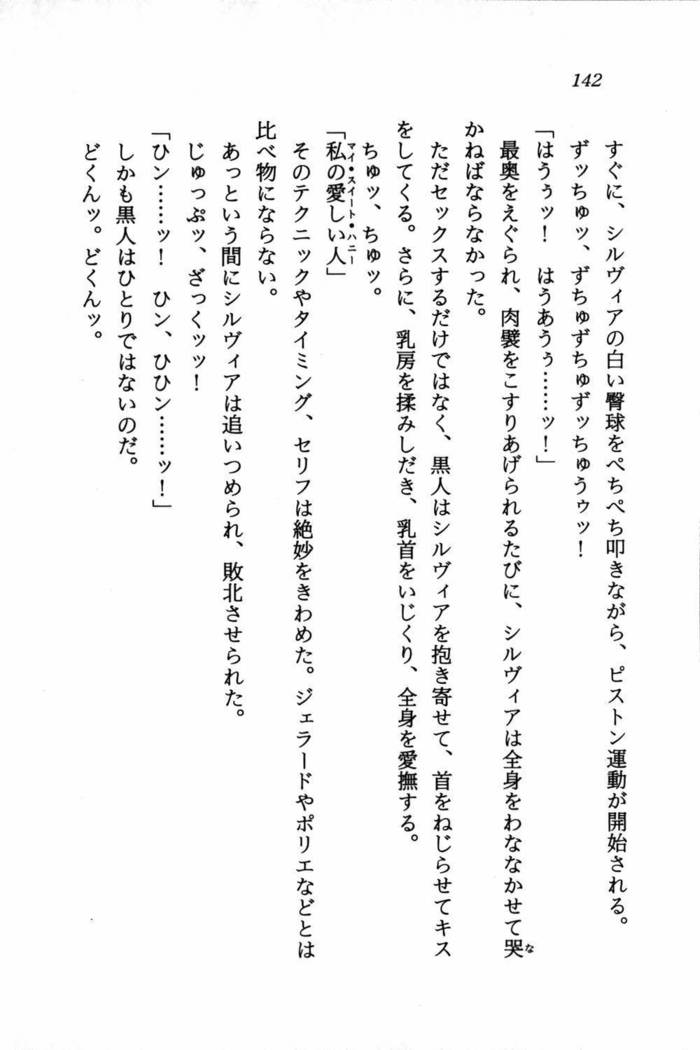 142
すぐに、シルヴィアの白い臀球をぺちぺち叩きながら、ピストン運動が開始される。
ずッちゅッ、ずちゅずちゅずッちゅうゥッ!
「はうぅッ! はうあうぅ……ッ!」
最奥をえぐられ、肉襞をこすりあげられるたびに、シルヴィアは全身をわななかせて哭
な
かねばならなかった。
ただセックスするだけではなく、黒人はシルヴィアを抱き寄せて、首をねじらせてキス
をしてくる。さらに、乳房を揉みしだき、乳首をいじくり、全身を愛撫する。
ちゅッ、ちゅッ。
マイ・スイート・ハニー
「私の愛しい人」
そのテクニックやタイミング、セリフは絶妙をきわめた。ジェラードやポリエなどとは
比べ物にならない。
あっという間にシルヴィアは追いつめられ、敗北させられた。
じゅっぷッ、ざっくッッ!
「ひン……ッ! ひン、ひひン……ッ!」
しかも黒人はひとりではないのだ。
どくんッ。どくんッ。